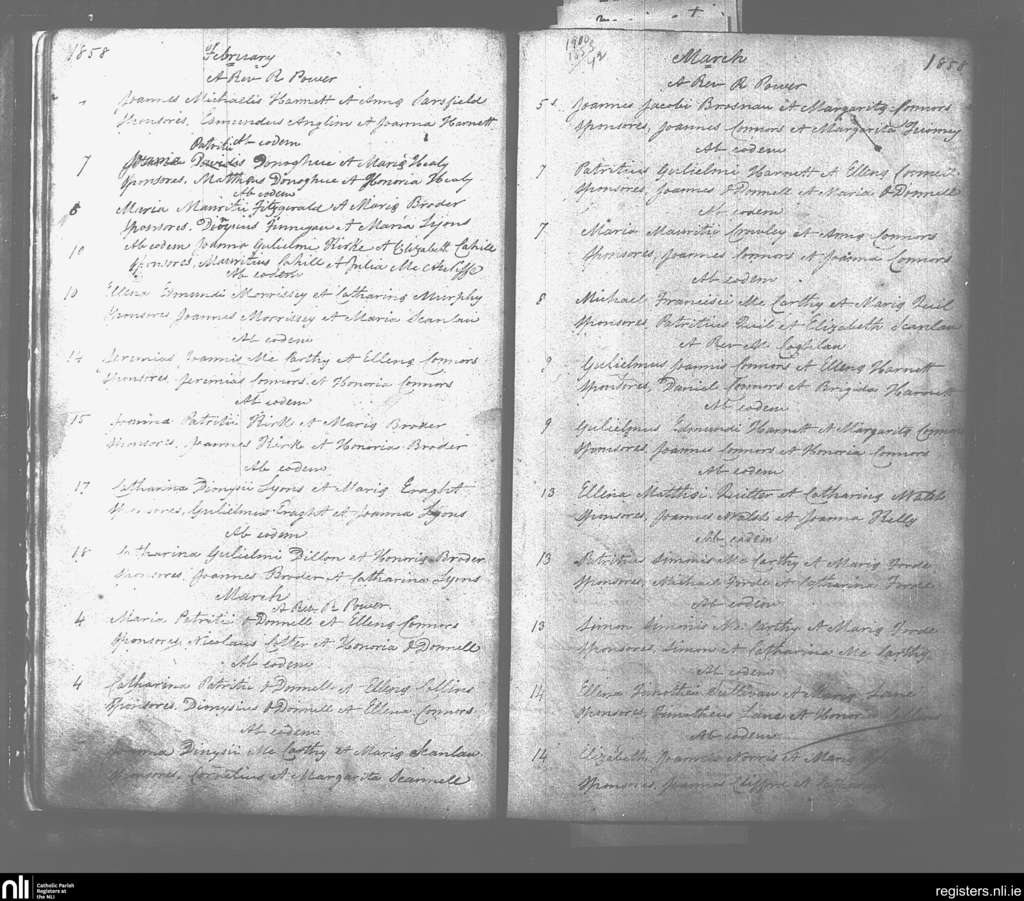 1858 February
A Rev R Power
Joannes Michaelis Harnett et Anna
Sponsores, Edmundus Anglim et Joanna Harnett
Ab eodem
Patritii
7 Maria Davidis Donoghue et Maria Healy
Sponsores, Matthæus Donoghue et Honoria Healy
Ab eodem
8 Maria Mauritii Fitzgerald et Maria Broder
Sponsores. Dionysius Finnegan et Maria Lyons
10 Ab eodem Joanna Gulielmi Kirke et Elizabeth Cahill
Sponsores, Mauritius Cahill et Julia Mc Auliffe
Ab eodem
10 Ellena Edmundi Morrissey et Catharina Murphy
Sponsores Joannes Morrissey et Maria Scanlan
Ab eodem
14 Jeremias Joannis Mc Carthy et Ellena Connors
Sponsores, Jeremias Connors et Honoria Connors
Ab eodem
15 Joanna Patritii Kirk et Maria Broder
Sponsores, Joannes Kirk et Honoria Broder
Ab eodem
17 Catharina Dionysii Lyons et Maria Eraght
Sponsores, Gulielmus Eraght et Joanna Lyons
Ab eodem
18 Catharina Gulielmi Dillon et Honoria Broder
Sponsores, Joannes Broder et Catharina Lyons
March
A Rev. R Power
4 Maria Patritii O Donnell et Ellena Connors
Sponsores, Nicolaus Colter et Honoria O Donnell
Ab eodem
4 Catharina Patritii O Donnell et Ellena Collins
Sponsores, Dionysius O Donnell et Ellena Connors
Ab eodem
Joanna Dionysii Mc Carthy et Maria Scanlan
Sponsores, Cornelius et Margarita Scannell
March 1858
A Rev R Power
5 Joannes Jacobi Brosnan et Margarita Connors
Sponsores, Joannes Connors et Margarita
Ab eodem
7 Patritius Gulielmi Harnett et Ellena
Sponsores, Joannes O Donnell et Maria O Donnell
Ab eodem
7 Maria Mauritii Crowley et Anna Connors
Sponsores, Joannes Connors et Joanna Connors
Ab eodem
8 Michael Francisci Mc Carthy et Maria Quil
Sponsores, Patritius Quil et Elizabeth Scanlan
A Rev M Coghlan
9 Gulielmus Joannis Connors et Ellena Harnett
Sponsores, Daniel Connors et Brigida Harnett
Ab eodem
9 Gulielmus Edmundi Harnett et Margarita Connors
Sponsores, Joannes Connors et Honoria Connors
Ab eodem
13 Ellena Matthæi Ruitter et Catharina Walsh
Sponsores, Joannes Walsh et Joanna Kelly
Ab eodem
13 Patritius Simonis Mc Carthy et Maria Forde
Sponsores, Michael Forde et Catharina Forde
Ab eodem
13 Simon Simonis Mc Carthy et Maria Forde
Sponsores, Simon et Catharina Mc Carthy
Ab eodem
14 Ellena Timothei Sullivan et Maria Lane
Sponsores, Timotheus Lane et Honoria
Ab eodem
14 Elizabeth Joannis Norris et Maria
Sponsores, Joannes Clifford et
nli Catholic Parish
Registers at
the NLI
registers.nli.ie